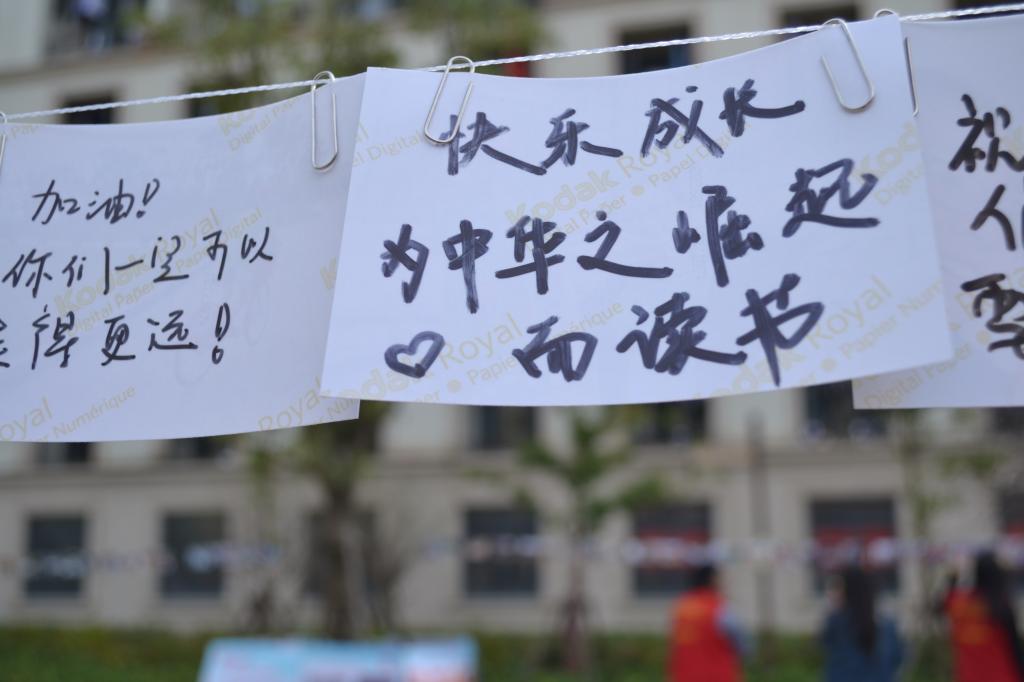 加油!
你们一定可以
得更远!
快乐成长
为中华之崛起
♡而读书
祝
Kodak Royal
Digital Paper • Papier Numérique